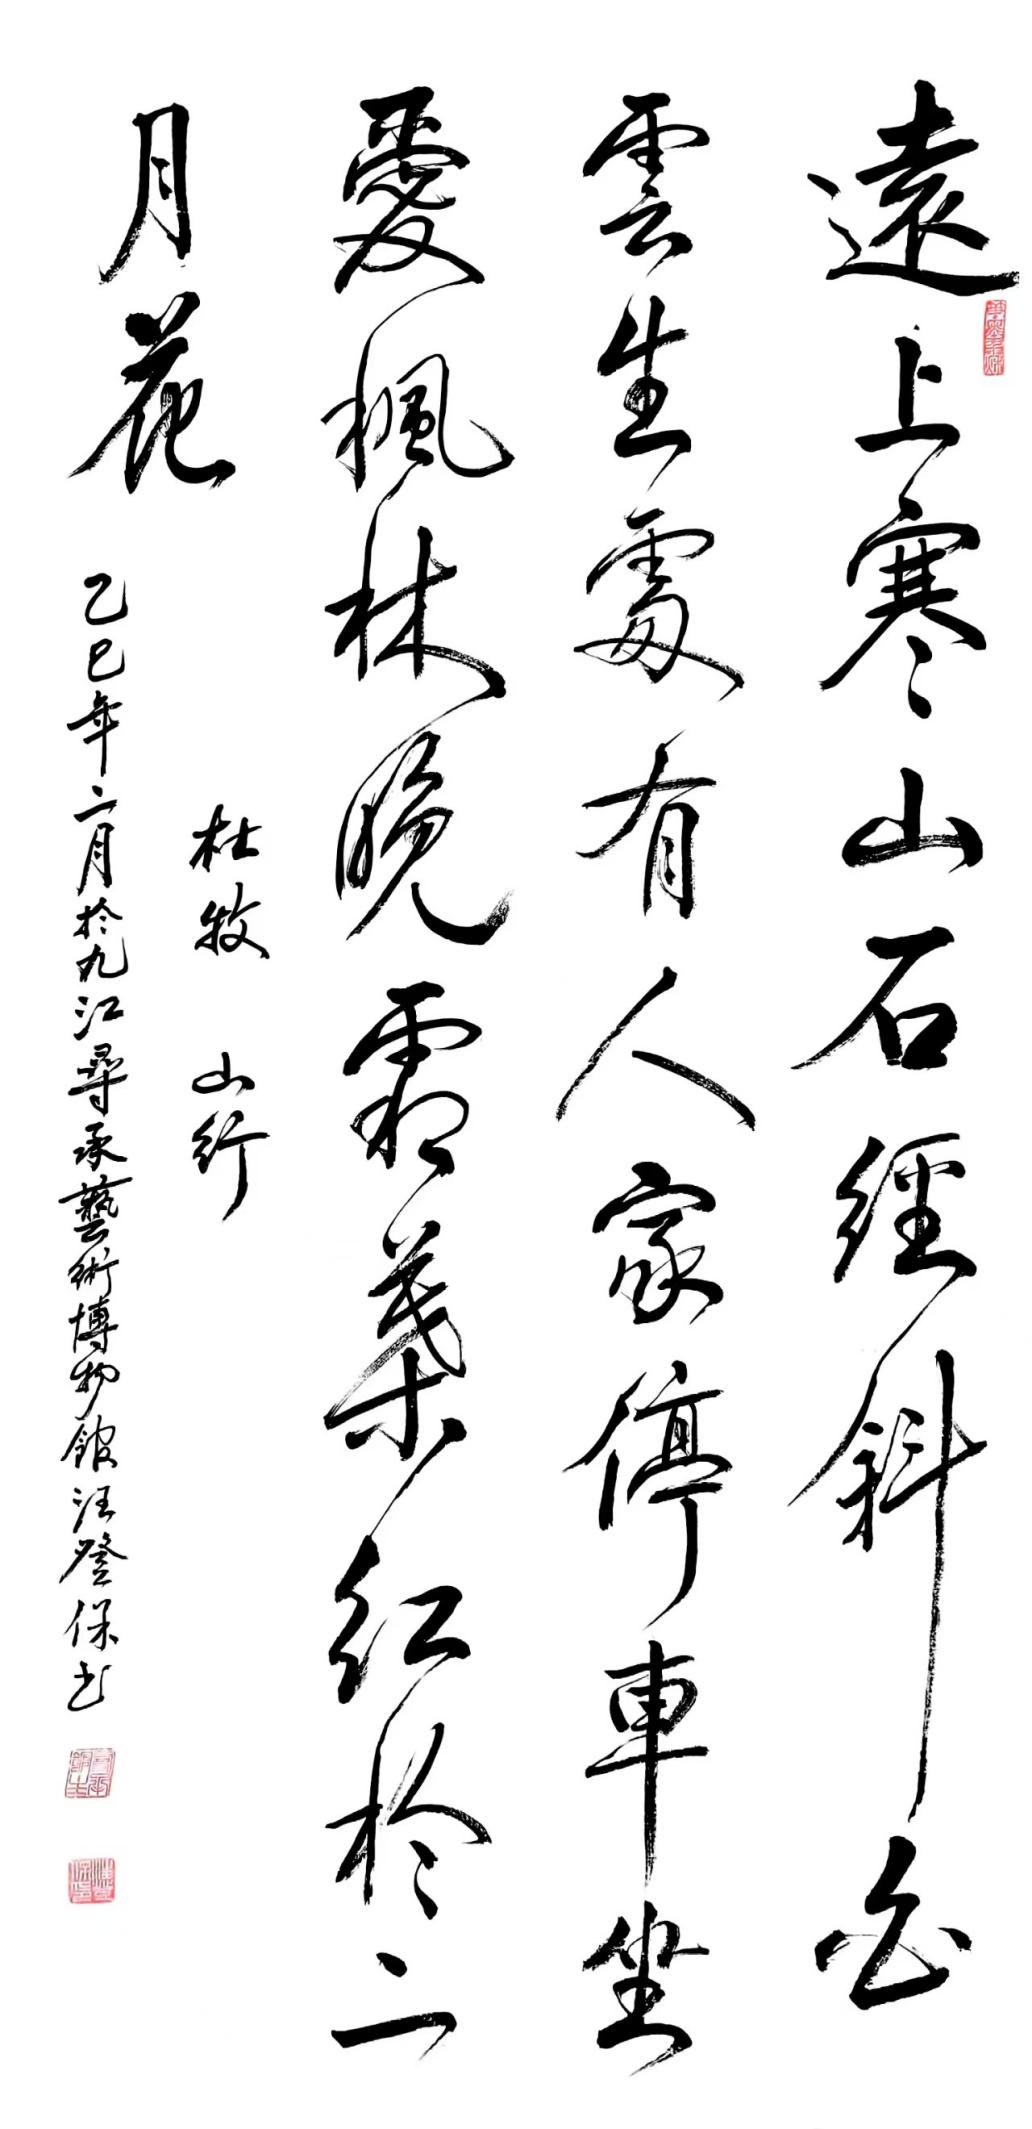 遠上寒山石經斜白
雲生處有人家停車坐
愛楓林晚霜葉紅於二
月花
杜牧 山行
乙巳年二月於九江尋承藝術博物館汪登保书